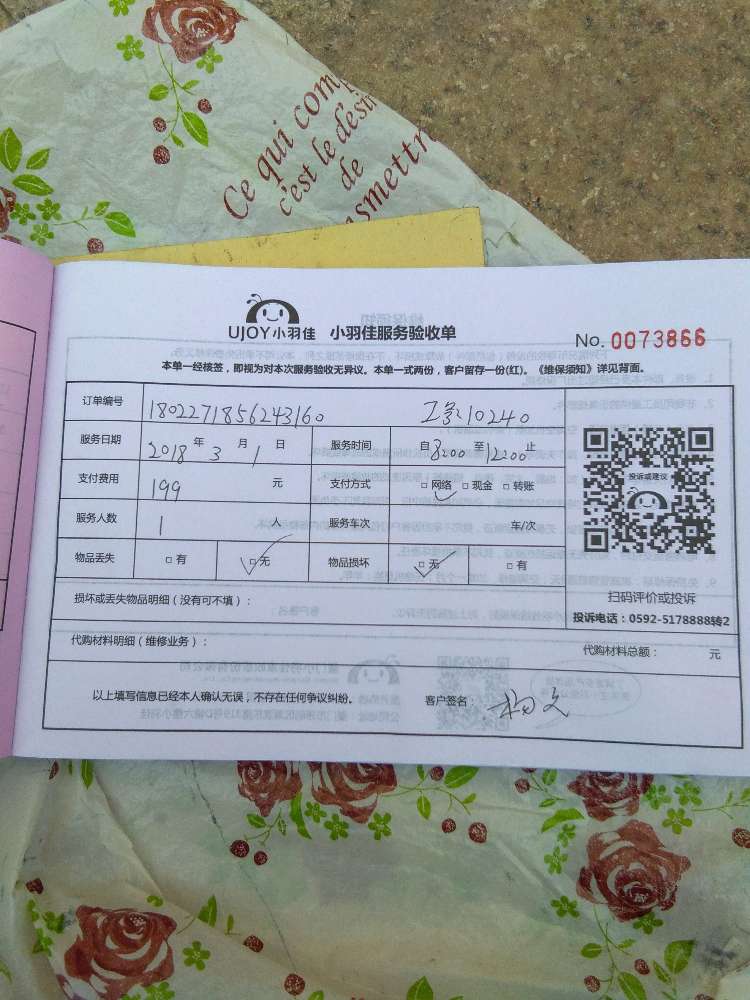 Ce qui com
c'est le désir
de
nsmettr
UJOY小羽佳 小羽佳服务验收单
No. 0073866
本单一经核签，即视为对本次服务验收无异议。本单一式两份，客户留存一份(红)。《维保须知》详见背面。
订单编号 1802271856243160 工号:10240
服务日期 2018 年 3 月 1 日 服务时间 自 8:00 至 12:00 止
支付费用 199 元 支付方式 □网络 □现金 □转账
服务人数 1 人 服务车次 车/次
物品丢失 □有 □无 物品损坏 □无 □有
投诉或建议
扫码评价或投诉
投诉电话：0592-5178888转2
损坏或丢失物品明细（没有可不填）：
代购材料明细（维修业务）： 代购材料总额： 元
以上填写信息已经本人确认无误，不存在任何争议纠纷。 客户签名：